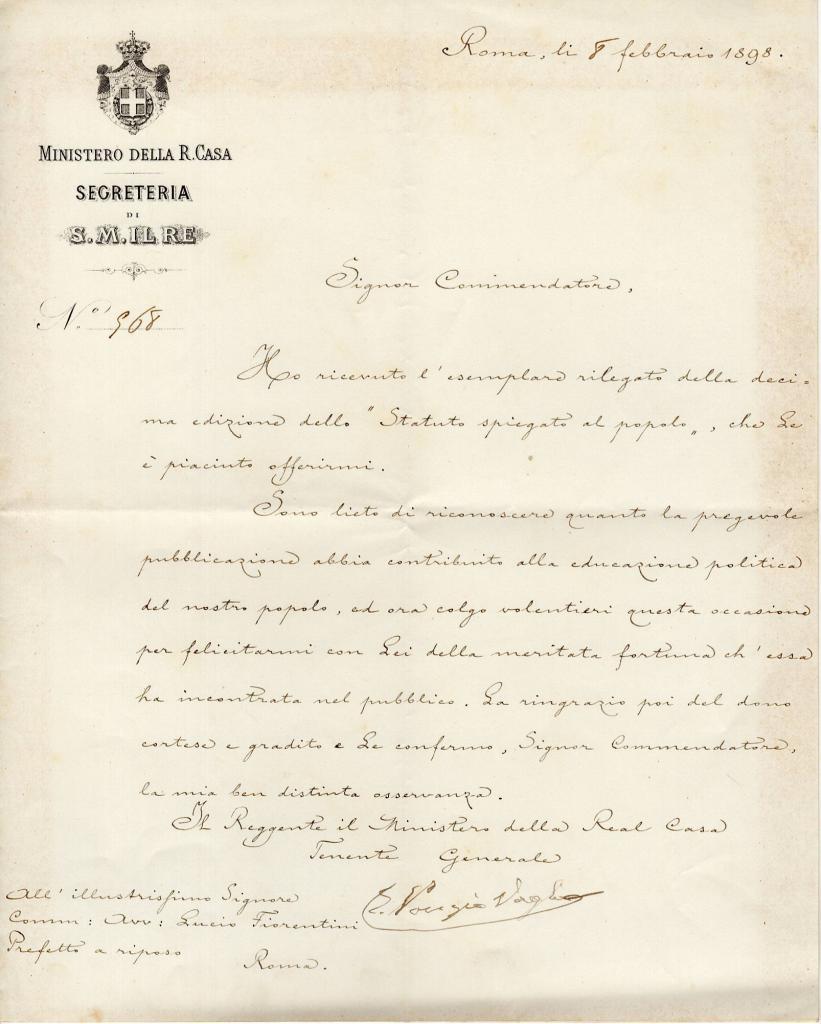 Roma, li 8 febbraio 1898.
MINISTERO DELLA R. CASA
SEGRETERIA
DI
S. M. IL RE
N.° 968
Signor Commendatore,
Ho ricevuto l'esemplare rilegato della deci=
ma edizione dello "Statuto spiegato al popolo„, che Le
è piaciuto offerirmi.
Sono lieto di riconoscere quanto la pregevole
pubblicazione abbia contribuito alla educazione politica
del nostro popolo, ed ora colgo volentieri questa occasione
per felicitarmi con Lei della meritata fortuna ch'essa
ha incontrata nel pubblico. La ringrazio poi del dono
cortese e gradito e Le confermo, Signor Commendatore,
la mia ben distinta osservanza.
Il Reggente il Ministero della Real Casa
Tenente Generale
E. Ponzio Vaglia
All'illustrissimo Signore
Comm: Avv: Lucio Fiorentini
Prefetto a riposo
Roma.